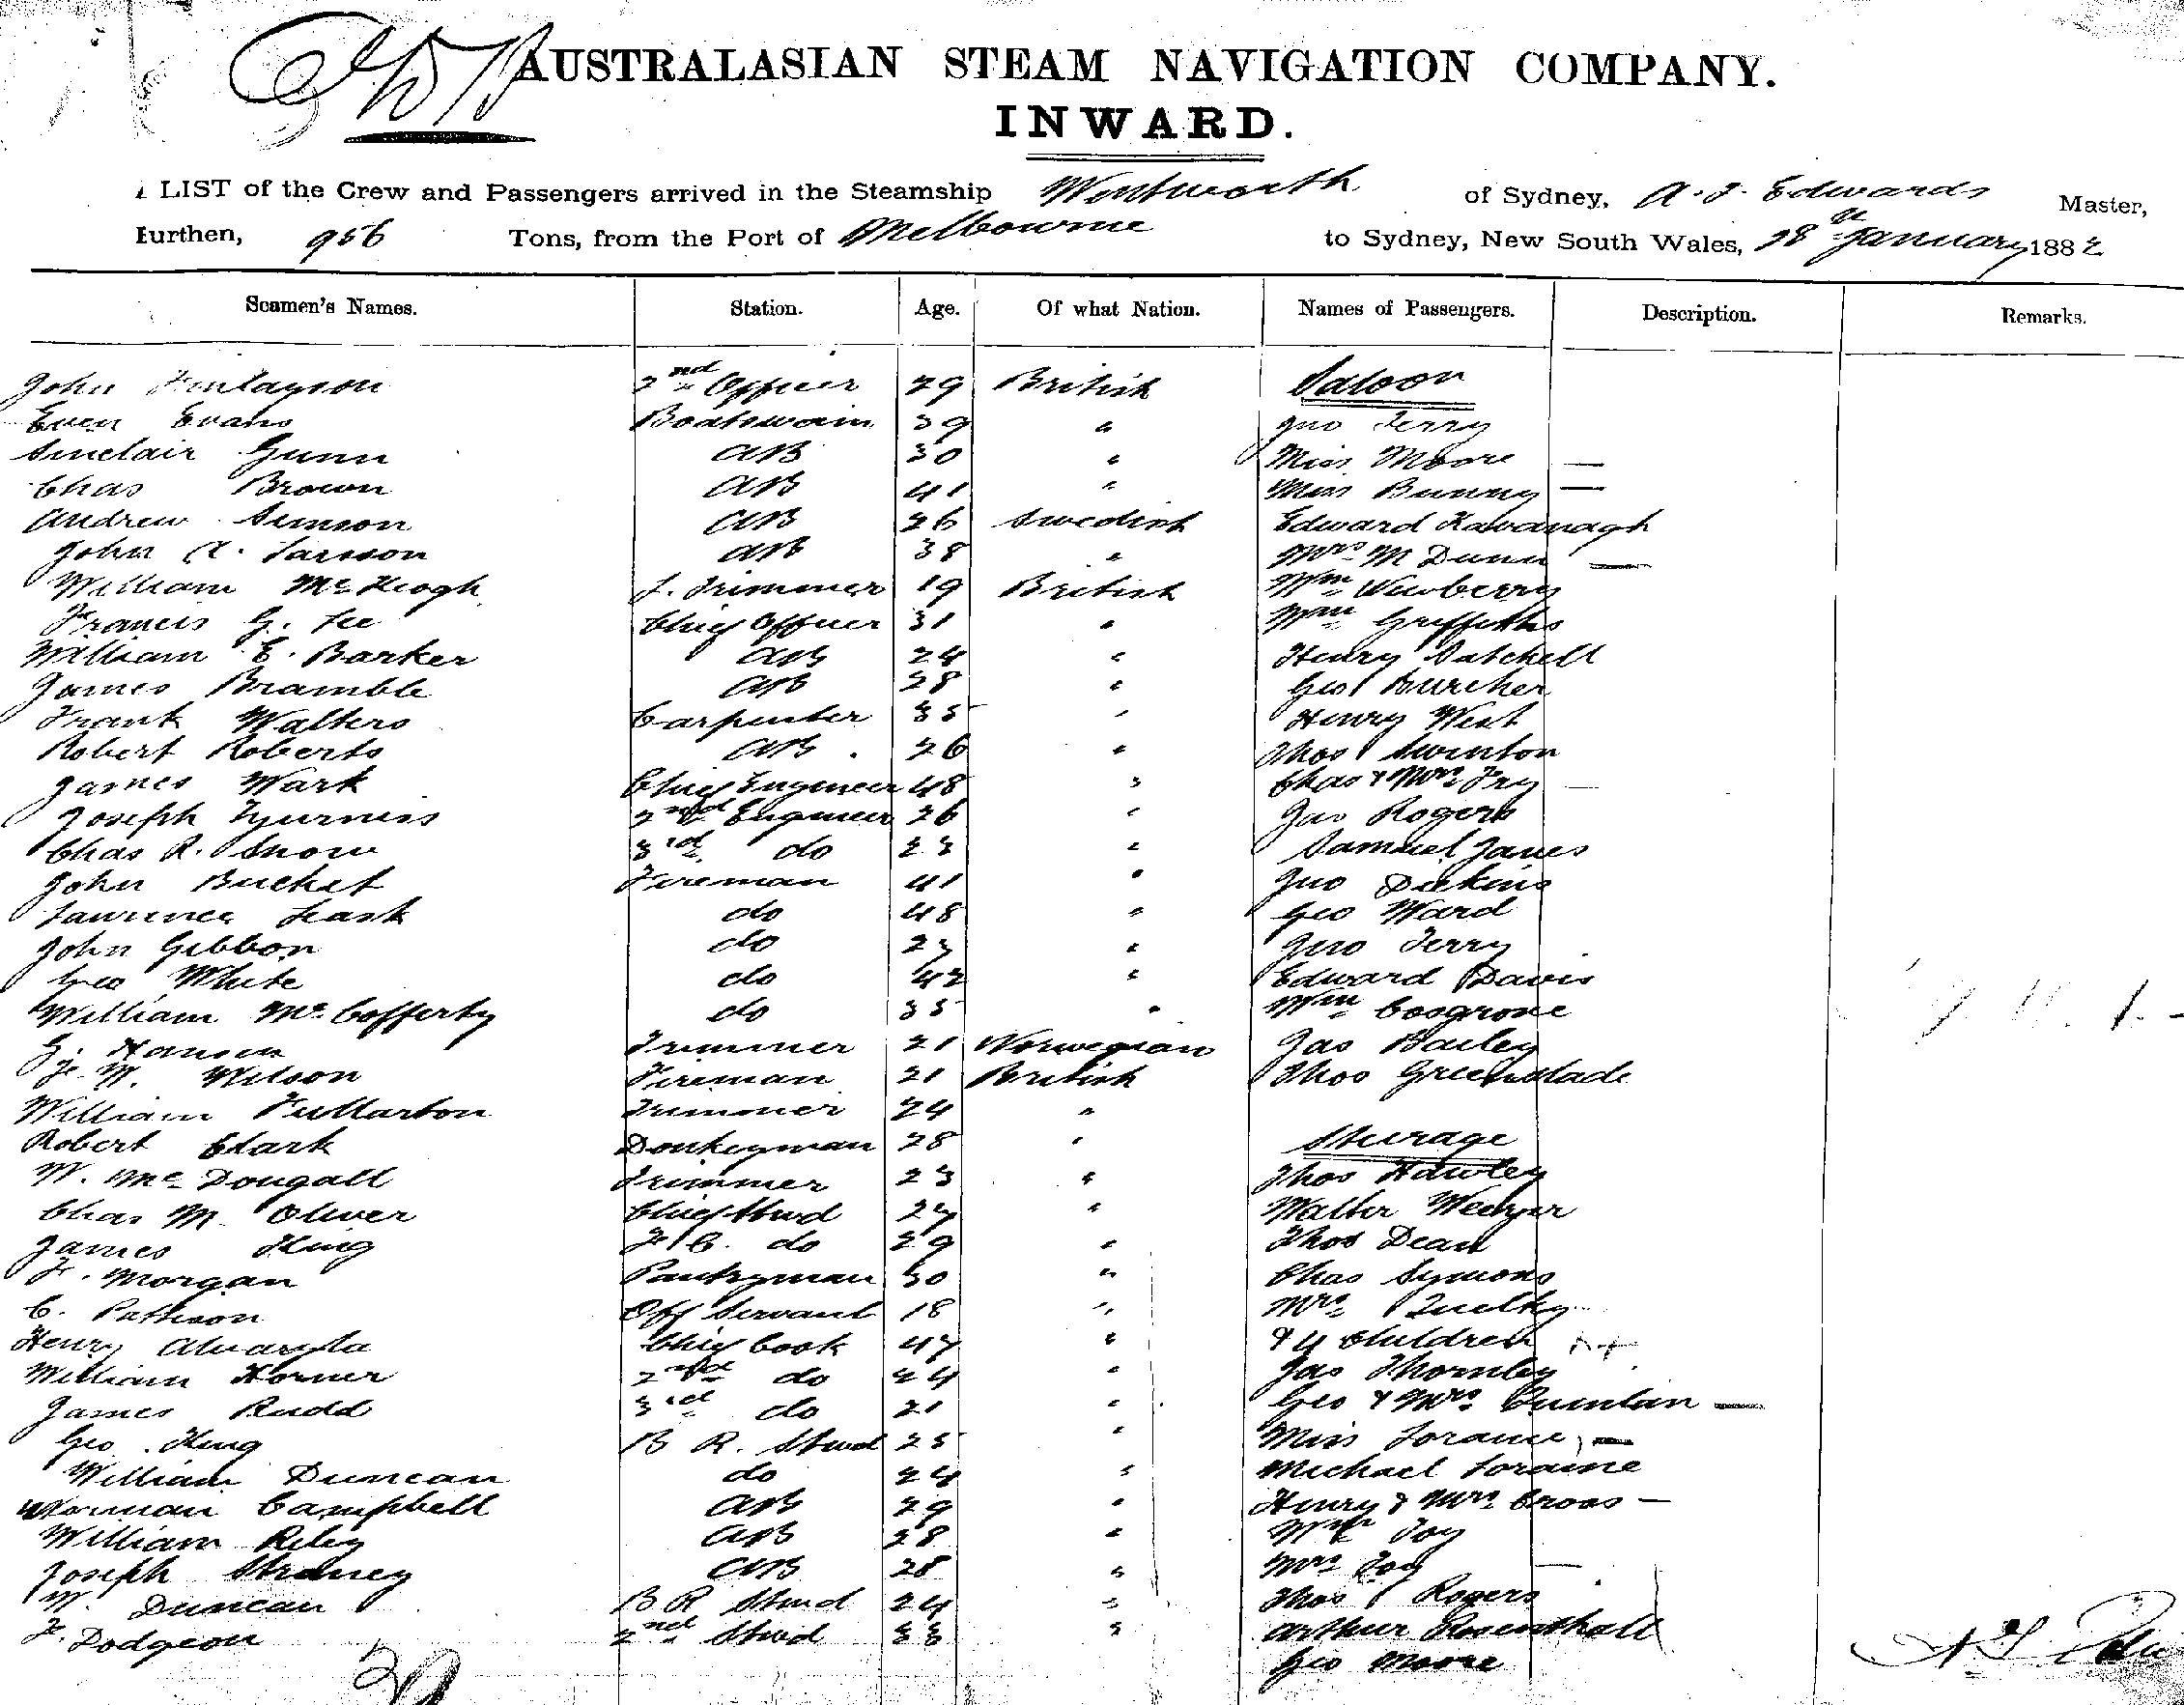 AUSTRALASIAN STEAM NAVIGATION COMPANY.
INWARD.
LIST of the Crew and Passengers arrived in the Steamship Wentworth of Sydney, A. J. Edwards Master,
Burthen, 956 Tons, from the Port of Melbourne to Sydney, New South Wales, 28th January 1882
Seamen's Names. Station. Age. Of what Nation. Names of Passengers. Description. Remarks.
John Finlayson 2nd Officer 29 British Saloon
Even Evans Boatswain 39 " Jno Terry
Sinclair Gunn AB 30 " Miss Moore —
Chas Brown AB 41 " Miss Bunny —
Andrew Simson AB 26 Swedish Edward Kavanagh
John A. Larsson AB 38 " Mrs M Dunn —
William McKeogh F. Trimmer 19 British Wm Newberry
Francis G. Lee Chief Officer 31 " Wm Griffiths
William E. Barker AB 24 " Henry Satchell
James Bramble AB 28 " Geo Burcher
Frank Walters Carpenter 35 " Henry West
Robert Roberts AB 26 " Thos Swinton
James Wark Chief Engineer 48 " Chas & Mrs Fry —
Joseph Furniss 2nd Engineer 26 " Jas Rogers
Chas R. Snow 3rd do 23 " Samuel Janes
John Bucket Fireman 41 " Jno Dickins
Laurence Leask do 48 " Geo Ward
John Gibbon do 23 " Jno Terry
Geo White do 42 " Edward Davis
William McCofferty do 35 " Wm Cosgrove
G. Hansen Trimmer 21 Norwegian Jas Bailey
W. Wilson Fireman 21 British Thos Greenslade
William Fullarton Trimmer 24 "
Robert Clark Donkeyman 28 " Steerage
W. McDougall Trimmer 23 " Thos Hawley
Chas M. Oliver Chief Stwd 27 " Walter
James King F. C. do 29 " Thos Dean
F. Morgan Pantryman 30 " Chas Symons
C. Pattison Off Servant 18 " Mrs
Henry Chief Cook 47 " & 4 Children
William Horner 2nd do 24 " Jas Thornley
James Rudd 3rd do 21 " Geo & Mrs Quinlan —
Geo. King B R. Stwd 25 " Miss Loraine, —
William Duncan do 24 " Michael Loraine
Norman Campbell AB 29 " Henry & Mrs Cross —
William Riley AB 38 " Wm Joy
Joseph AB 28 " Mrs Joy —
W. Duncan B R Stwd 24 " Thos Rogers
F. Dodgeon 2nd Stwd 33 " Arthur Rosenthall
Geo Moore